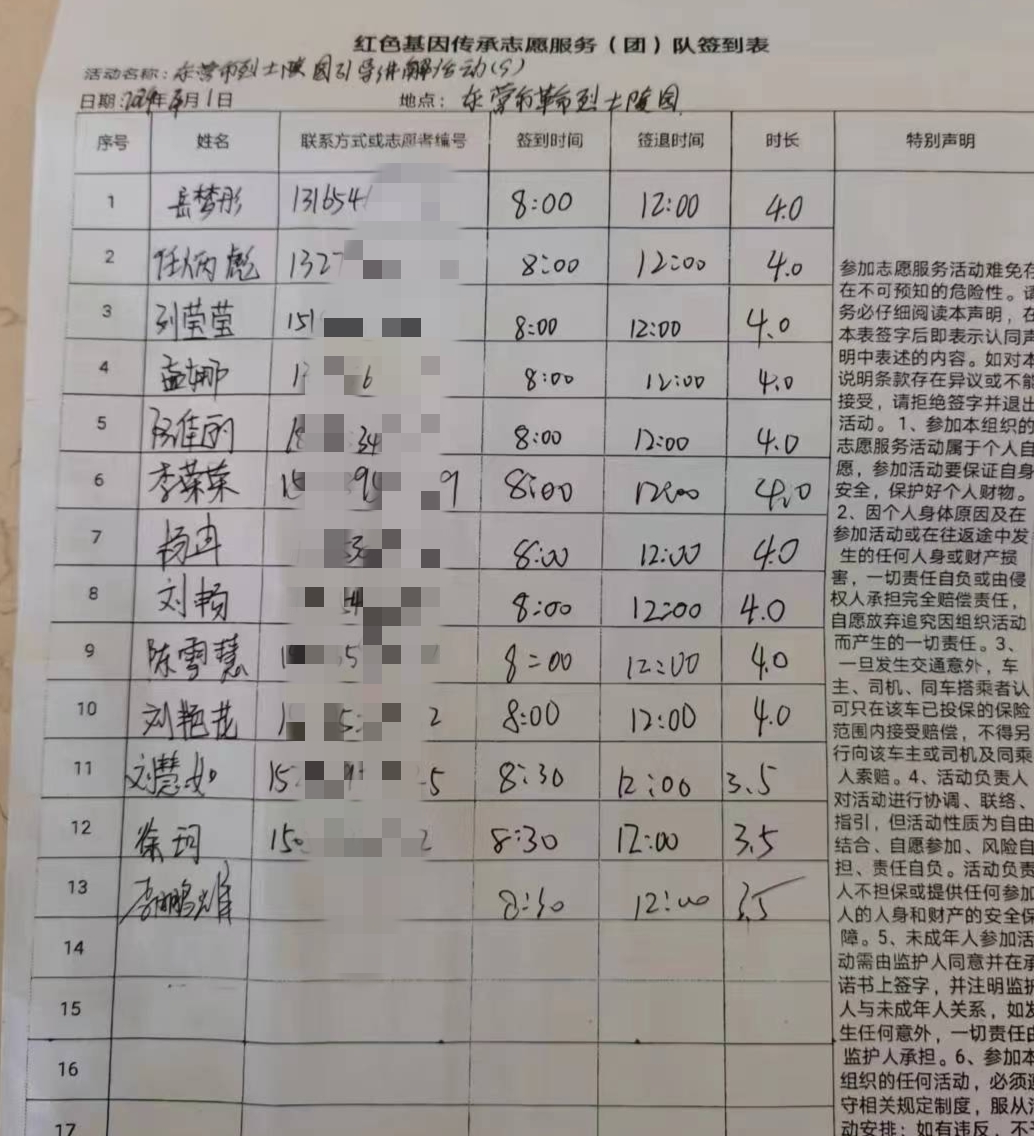 红色基因传承志愿服务（团）队签到表
活动名称：东营市烈士陵园引导讲解活动(5)
日期: 年 月1日 地点：东营市革命烈士陵园
序号 姓名 联系方式或志愿者编号 签到时间 签退时间 时长 特别声明
1 岳梦彤 131654 8:00 12:00 4.0
2 任炳彪 1327 8:00 12:00 4.0
3 刘莹莹 151 8:00 12:00 4.0
4 孟娜 1 6 8:00 12:00 4.0
5 佳丽 1 34 8:00 12:00 4.0
6 李荣荣 15 9 9 8:00 12:00 4.0
7 杨冉 8:00 12:00 4.0
8 刘畅 8:00 12:00 4.0
9 陈雪慧 1 5 8:00 12:00 4.0
10 刘艳花 1 5 2 8:00 12:00 4.0
11 刘慧如 15 5 8:30 12:00 3.5
12 徐珂 15 2 8:30 12:00 3.5
13 李鹏雄 8:30 12:00 3.5
14
15
16
17
参加志愿服务活动难免存
在不可预知的危险性。请
务必仔细阅读本声明，在
本表签字后即表示认同声
明中表述的内容。如对本
说明条款存在异议或不能
接受，请拒绝签字并退出
活动。1、参加本组织的
志愿服务活动属于个人自
愿，参加活动要保证自身
安全，保护好个人财物。
2、因个人身体原因及在
参加活动或在往返途中发
生的任何人身或财产损
害，一切责任自负或由侵
权人承担完全赔偿责任，
自愿放弃追究因组织活动
而产生的一切责任。3、
一旦发生交通意外，车
主、司机、同车搭乘者认
可只在该车已投保的保险
范围内接受赔偿，不得另
行向该车主或司机及同乘
人索赔。4、活动负责人
对活动进行协调、联络、
指引，但活动性质为自由
结合、自愿参加、风险自
担、责任自负。活动负责
人不担保或提供任何参加
人的人身和财产的安全保
障。5、未成年人参加活
动需由监护人同意并在承
诺书上签字，并注明监护
人与未成年人关系，如发
生任何意外，一切责任由
监护人承担。6、参加本
组织的任何活动，必须遵
守相关规定制度，服从活
动安排；如有违反，不